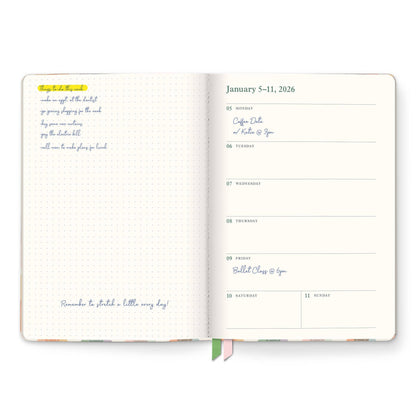 things to do this week
-make an appt. at the dentist
-go grocery shopping for the week
-buy some new curtains
-pay the electric bill
-call mom to make plans for lunch
Remember to stretch a little every day!
January 5–11, 2026
05 MONDAY
Coffee Date
w/ Katie @ 2pm
06 TUESDAY
07 WEDNESDAY
08 THURSDAY
09 FRIDAY
Ballet Class @ 6pm
10 SATURDAY
11 SUNDAY